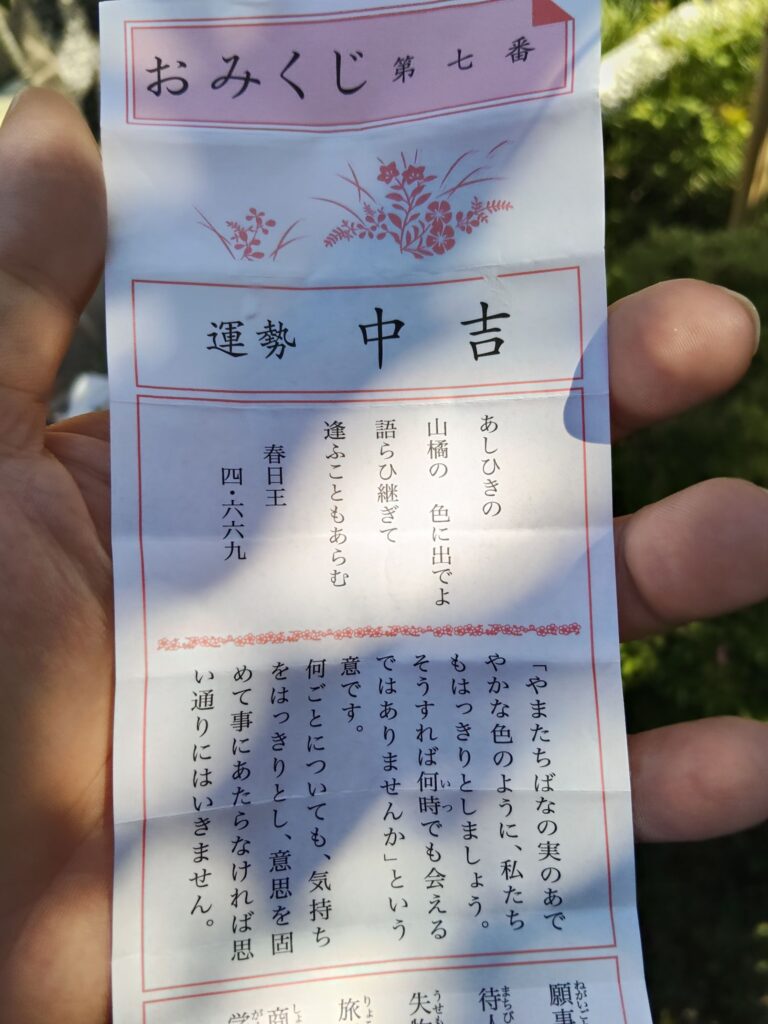 おみくじ 第七番
運勢 中吉
あしひきの
山橘の 色に出でよ
語らひ継ぎて
逢ふこともあらむ
春日王
四・六六九
「やまたちばなの実のあで
やかな色のように、私たち
もはっきりとしましょう。
そうすれば何時でも会える
いつ
ではありませんか」という
意です。
何ごとについても、気持ち
をはっきりとし、意思を固
めて事にあたらなければ思
い通りにはいきません。
願事
ねがいご
待人
まちび
失物
うせも
旅
りょこ
商
しょ